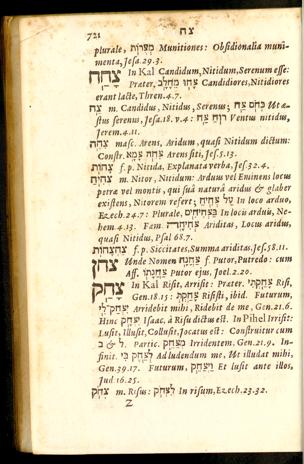 721 צח
plurale, מְצֻרוֹת Munitiones: Obsidionalia muni-
menta, Jesa. 29.3.
צָחַח In Kal Candidum, Nitidum, Serenum esse:
Prater, צַחוּ מֵחָלָב Candidiores, Nitidiores
erant lacte, Thren. 4.7.
צַח m. Candidus, Nitidus, Serenus; כְּחֹם צַח Ut æ-
stus serenus, Jesa. 18. v. 4: רוּחַ צַח Ventus nitidus,
Jerem. 4.11.
צִחֶה masc. Arens, Aridum, quasi Nitidum dictum:
Constr. צִחֵה צָמָא Arens siti, Jes. 5.13.
צָחוֹת f. p. Nitida, Explanata verba, Jes. 32.4.
צְחִיחַ m. Nitor, Nitidum: Arduum vel Eminens locus
petra vel montis, qui suâ naturâ aridus & glaber
existens, Nitorem refert; עַל צְחִיחַ In loco arduo,
Ezech. 24.7: Plurale, בַּצְּחִיחִים In locis arduis, Ne-
hem 4.13. Fam. צְחִיחָה Ariditas, Locus aridus,
quasi Nitidus, Psal 68.7.
צַחְצָחוֹת f. p. Siccitates, Summa ariditas, Jes. 58.11.
צחן Unde Nomen צַחֲנָה f. Putor, Putredo: cum
Aff. צַחֲנָתוֹ Putor ejus, Joel. 2.20.
צָחַק In Kal Risit, Arrisit: Prater. צָחַקְתִּי Risi,
Gen. 18.15: צָחָקְתְּ Risisti, ibid. Futurum,
יִצְחַק־לִי Arridebit mihi, Ridebit de me, Gen. 21.6.
Hinc יִצְחָק Isaac, à Risu dictus est. In Pihel Irrisit:
Lusit, Illusit, Collusit, Jocatus est: Construitur cum
ל & ב. Partic. מְצַחֵק Irridentem, Gen. 21.9. In-
finit. לְצַחֶק בִּי Ad ludendum me, Ut illudat mihi,
Gen. 39.17. Futurum, וַיְצַחֵק Et lusit ante illos,
Jud. 16.25.
צְחֹק m. Risus: לִצְחֹק In risum, Ezech. 23.32.
Z